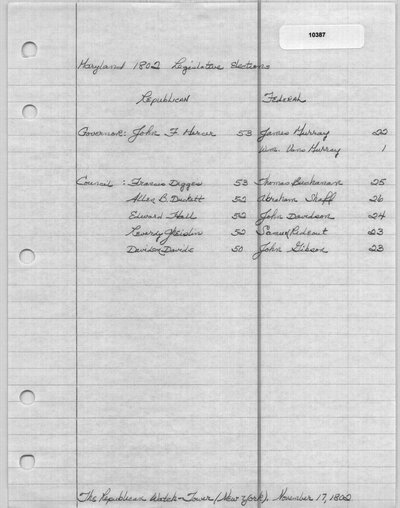 10387
Maryland 1802 Legislative Elections
Republican Federal
Governor: John F. Mercer 53 James Murray 22
Wm. Vans Murray 1
Council: Francis Digges 53 Thomas Buchanan 25
Allen B. Duckett 52 Abraham Shaff 26
Edward Hall 52 John Davidson 24
Reverdy Gheislin 52 Samuel Rideout 23
Davidson Davids 50 John Gibson 23
The Republican Watch-Tower (New York). November 17, 1802